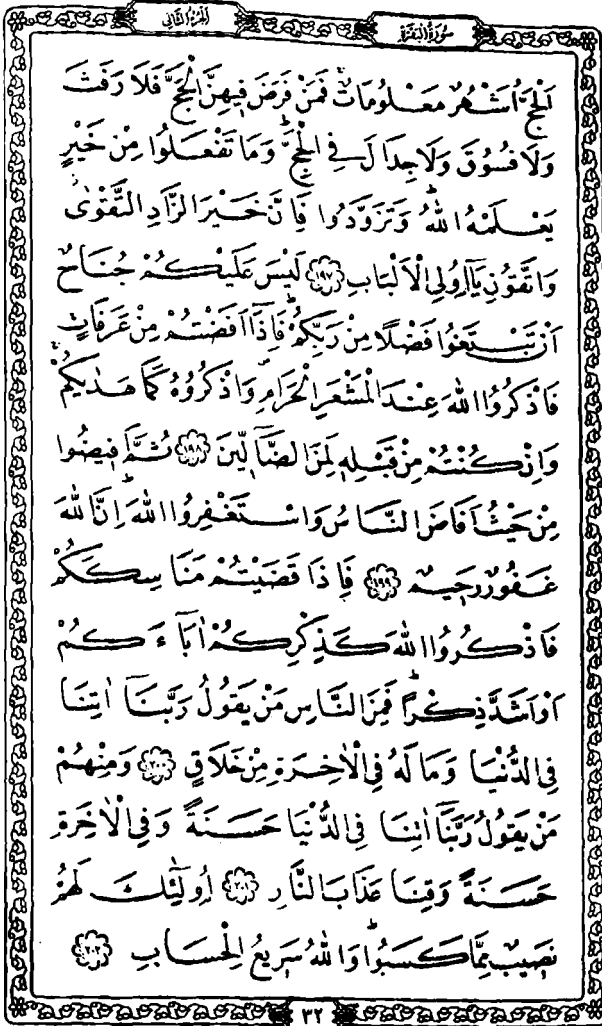 الجزء الثاني
سورة البقرة
اَلْحَجُّ اَشْهُرٌ مَعْلُومَاتٌۚ فَمَنْ فَرَضَ فِيهِنَّ الْحَجَّ فَلَا رَفَثَ
وَلَا فُسُوقَ وَلَا جِدَالَ فِي الْحَجِّۜ وَمَا تَفْعَلُوا مِنْ خَيْرٍ
يَعْلَمْهُ اللّٰهُۜ وَتَزَوَّدُوا فَاِنَّ خَيْرَ الزَّادِ التَّقْوٰىۘ
وَاتَّقُونِ يَٓا اُو۬لِي الْاَلْبَابِ ﴿١٩٧﴾ لَيْسَ عَلَيْكُمْ جُنَاحٌ
اَنْ تَبْتَغُوا فَضْلًا مِنْ رَبِّكُمْۜ فَاِذَٓا اَفَضْتُمْ مِنْ عَرَفَاتٍ
فَاذْكُرُوا اللّٰهَ عِنْدَ الْمَشْعَرِ الْحَرَامِۖ وَاذْكُرُوهُ كَمَا هَدٰيكُمْۚ
وَاِنْ كُنْتُمْ مِنْ قَبْلِه۪ لَمِنَ الضَّٓالّ۪ينَ ﴿١٩٨﴾ ثُمَّ اَف۪يضُوا
مِنْ حَيْثُ اَفَاضَ النَّاسُ وَاسْتَغْفِرُوا اللّٰهَۜ اِنَّ اللّٰهَ
غَفُورٌ رَح۪يمٌ ﴿١٩٩﴾ فَاِذَا قَضَيْتُمْ مَنَاسِكَكُمْ
فَاذْكُرُوا اللّٰهَ كَذِكْرِكُمْ اٰبَٓاءَكُمْ
اَوْ اَشَدَّ ذِكْرًاۜ فَمِنَ النَّاسِ مَنْ يَقُولُ رَبَّنَٓا اٰتِنَا
فِي الدُّنْيَا وَمَا لَهُ فِي الْاٰخِرَةِ مِنْ خَلَاقٍ ﴿٢٠٠﴾ وَمِنْهُمْ
مَنْ يَقُولُ رَبَّنَٓا اٰتِنَا فِي الدُّنْيَا حَسَنَةً وَفِي الْاٰخِرَةِ
حَسَنَةً وَقِنَا عَذَابَ النَّارِ ﴿٢٠١﴾ اُو۬لٰٓئِكَ لَهُمْ
نَص۪يبٌ مِمَّا كَسَبُواۜ وَاللّٰهُ سَر۪يعُ الْحِسَابِ ﴿٢٠٢﴾
٣٢